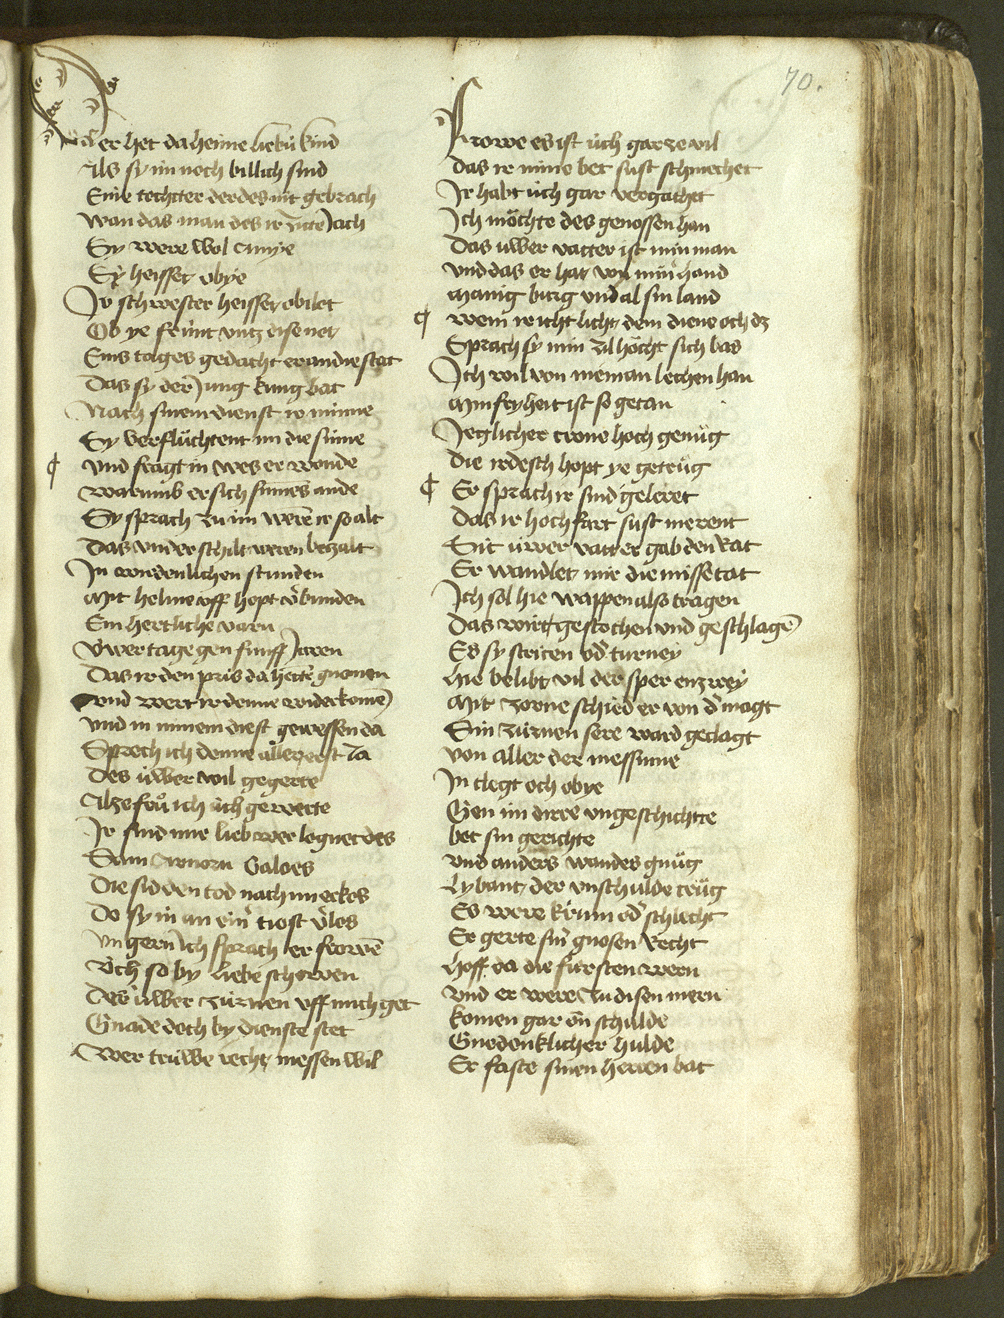 70.
Vnd er het da heime liebú kind
Als sy im noch billich sind
Sine techter der des nit gebrach
Wan das man des ir zitte Jach
Sy were wol amye
Sy heisset obye
Ir schwester heisset obilet
Ob ye frúnt vntz eise net
Eins tages gedacht er an die stat
Das sy der Jung kúng bat
Nach sinem dienst ir minne
Sy verflúchtent im die sinne
Vnd fragt in wes er wonde
Warumb er sich sinnes ande
Sy sprach zu im weren ir so alt
Das vnder schilt weren bezalt
In wirdenlichen stunden
Mit helme vff hopt v̄bunden
Ein hertliche varn
Vwer tage gen fúnff Jaren
Das ir den pris da hette gnomen
Vnd wert ir denne wider komē
Vnd in minem diest gewessen da
Sprech ich denne allererst Ja
Des úwer wil gegerte
Alze frú ich úch gewerte
Ir sind mir lieb wer lognet des
Sam Annorn Galoes
Die sid den tod nach im erkos
Do sy in an ein' tiost v̄los
Vngern Ich sprach er frowē
Vch so by liebe schowen
Des úwer zúrnen vff mich get
Gnade doch by dienste stet
Wer trúwe recht messen wil
Frowe es ist úch gar ze vil
Das ir mine bet sust schmechet
Ir habt úch gar vergachet
Ich möchte des genossen han
Das úwer vatter ist min man
Vnd das er hat von min hand
Manig burg vnd al sin land
Wem ir icht licht dem diene och dz
Sprach sy min zil höcht sich bas
Ich wil von nieman lechen han
Min fryheit ist so getan
Jeglicher crone hoch genúg
Die irdesch hopt ye getrúg
Er sprach ir sind geleret
Das ir hochfart sust merent
Sit úwer vatter gab den rat
Er wandlet mir die missetat
Ich sol hie wappen also tragen
Das wirt gestochen vnd geschlagē
Es sy striten od' turney
Hie belibt vil der sper enzwey
Mit zorne schied er von d' magt
Sin zúrnen sere ward geclagt
Von aller der messinne
In clegt och obye
Gen im dirre vngeschichte
bet sin gerichte
Vnd anders wandes gnúg
Lybantz der vnschulde trúg
Es were krum od' schlecht
Er gerte sin' gnosen recht
Hoff da die fúrsten wern
Vnd er were zu disen mern
Komen gar ōn schulde
Gnedenklicher hulde
Er faste sinen herren bat